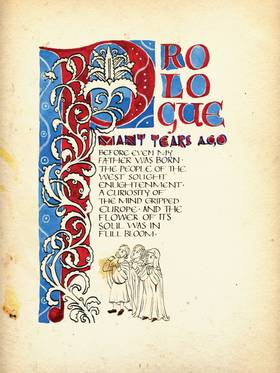 PROLOGUE
MANY YEARS AGO
BEFORE EVEN MY
FATHER WAS BORN ·
THE PEOPLE OF THE
WEST SOUGHT
ENLIGHTENMENT ·
A CURIOSITY OF
THE MIND GRIPPED
EUROPE · AND THE
FLOWER OF ITS
SOUL WAS IN
FULL BLOOM ·